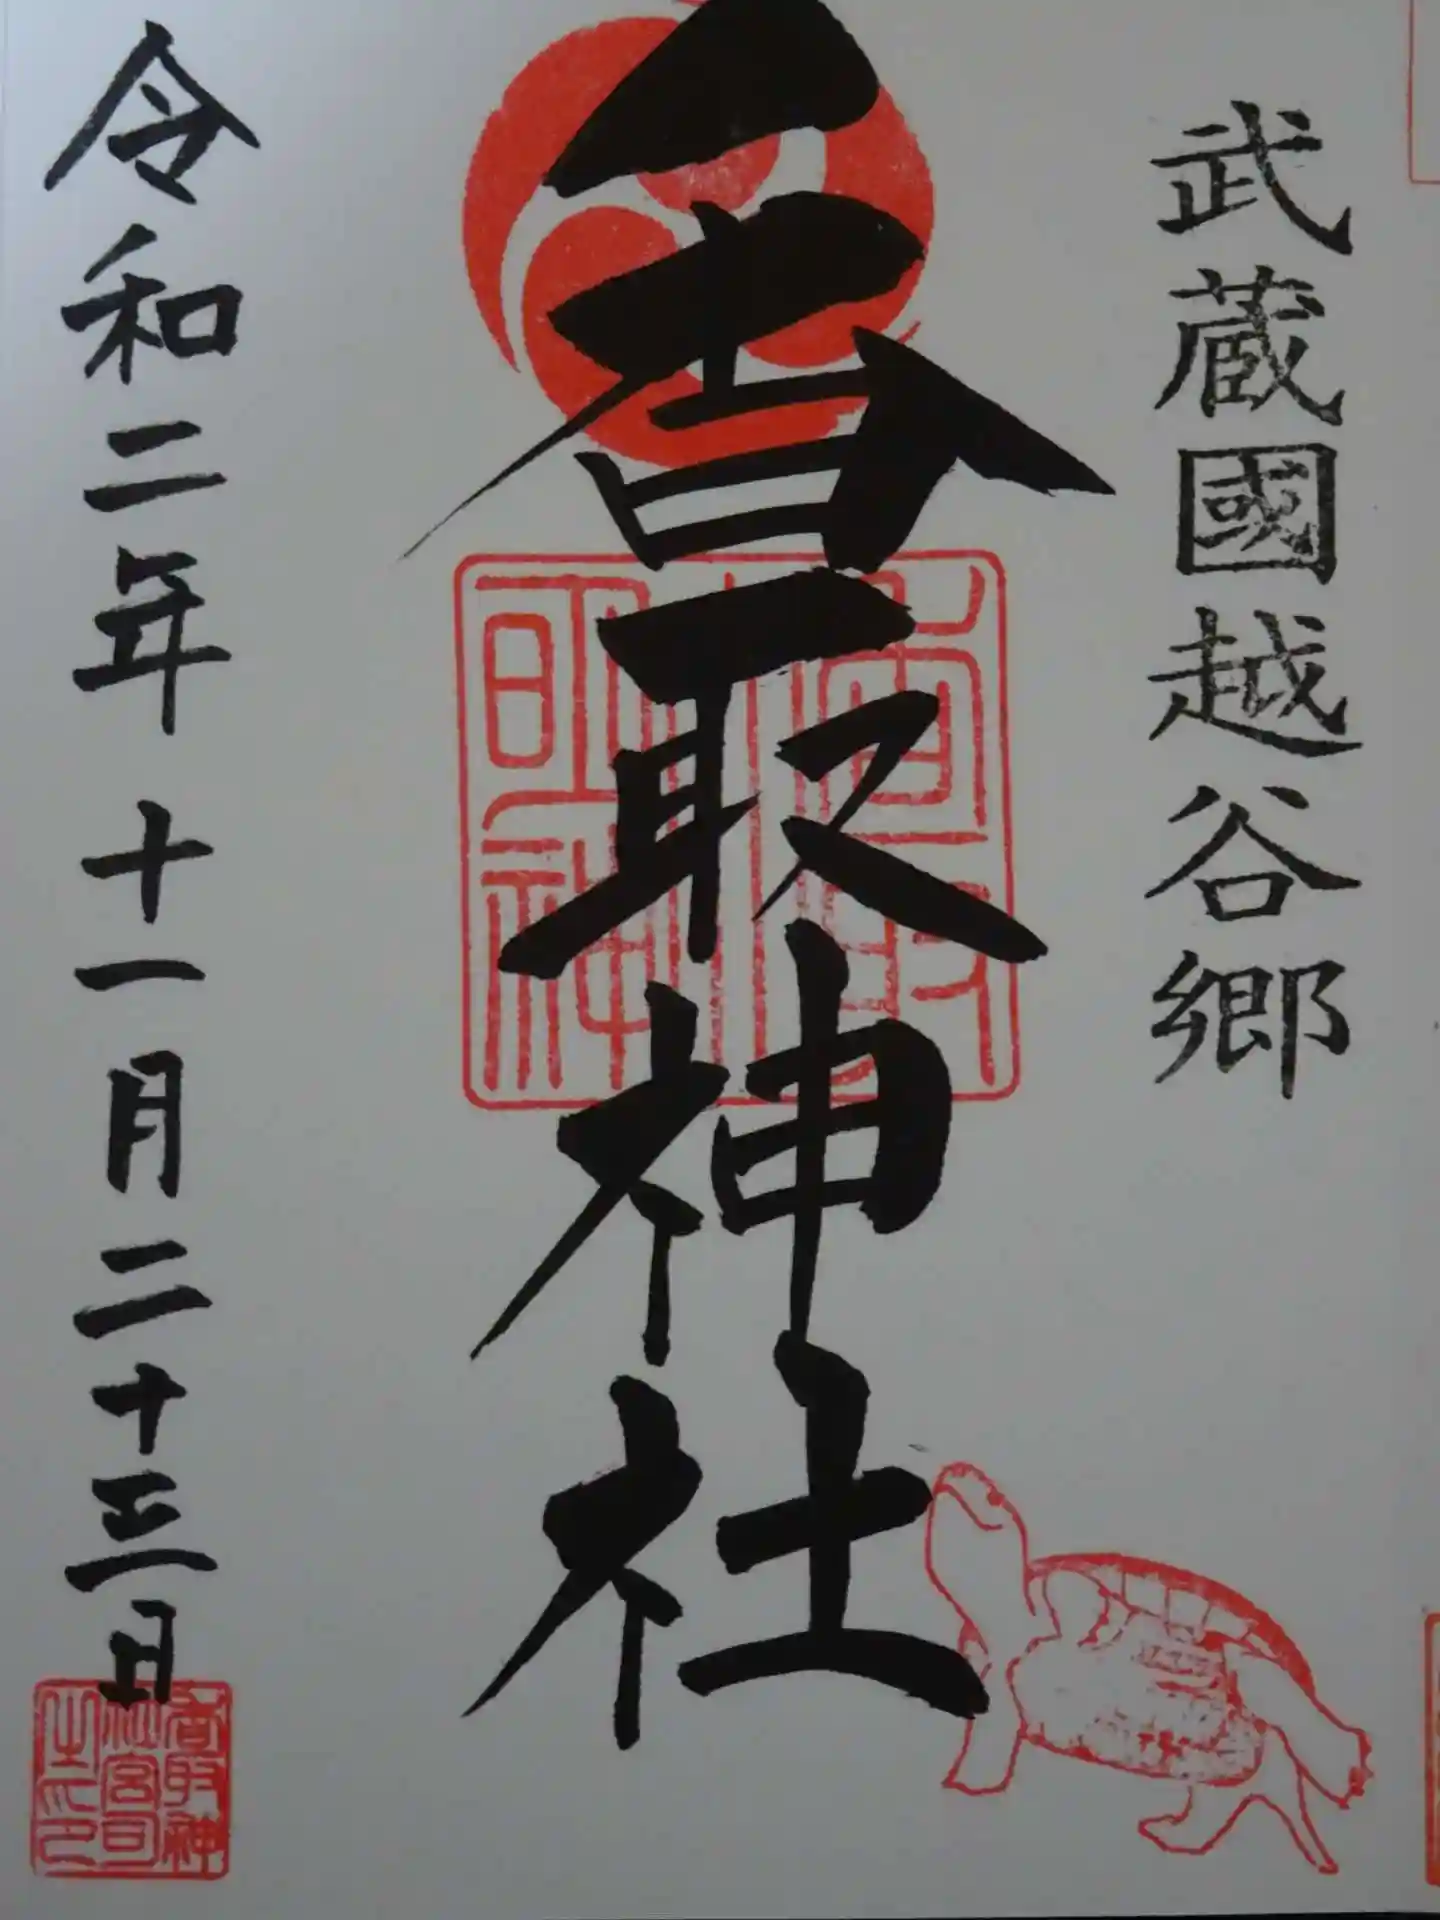 武蔵國越谷郷
香取神社
令和二年十一月二十三日
香取神
社宮司
之印